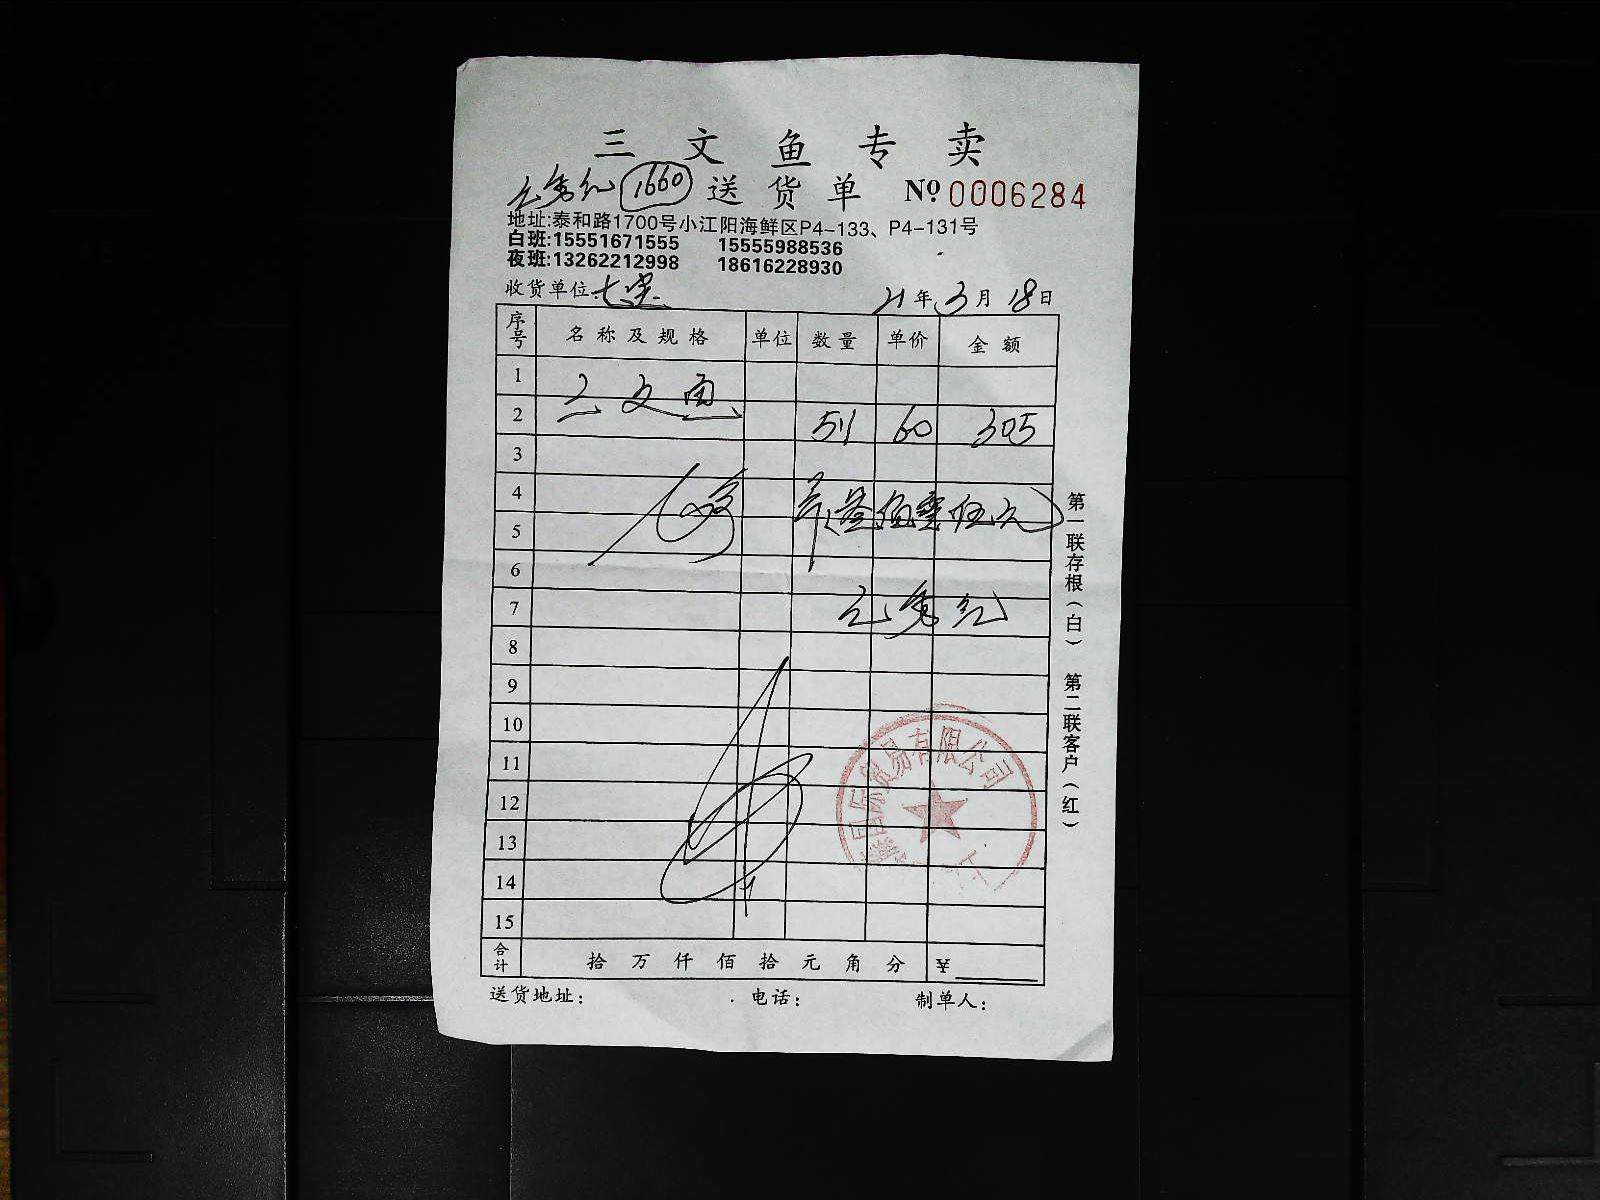 三文鱼专卖
1660 送货单 No 0006284
地址:泰和路1700号小江阳海鲜区P4-133、P4-131号
白班:15551671555 15555988536
夜班:13262212998 18616228930
收货单位: 21年3月18日
序号 名称及规格 单位 数量 单价 金额
1 三文鱼
2 51 60 305
3
4
5
6
7
8
9
10
11
12
13
14
15
合计 拾万仟佰拾元角分 ¥
送货地址: 电话: 制单人:
第一联存根(白) 第二联客户(红)
国际贸易有限公司